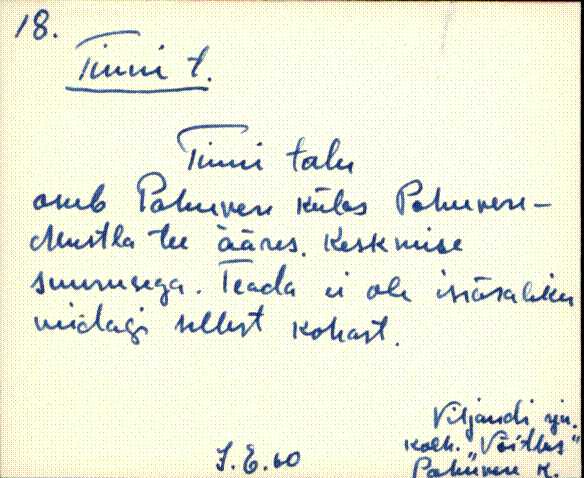 18.
Tinni t.
Tinni talu
asub Pahuvere külas Pahuvere-
Mustla tee ääres. Keskmise
suurusega. Teada ei ole isiäsalika
midagi sellest kohast.
Viljandi rjn.
kolh. "Võitlus"
J.E.60
Pahuvere k.